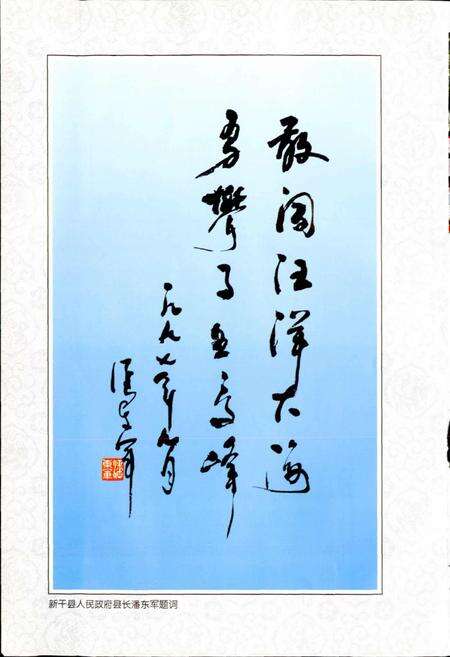 敢闯汪洋大海
勇攀事业高峰
一九九七年九月
潘东军
新干县人民政府县长潘东军题词